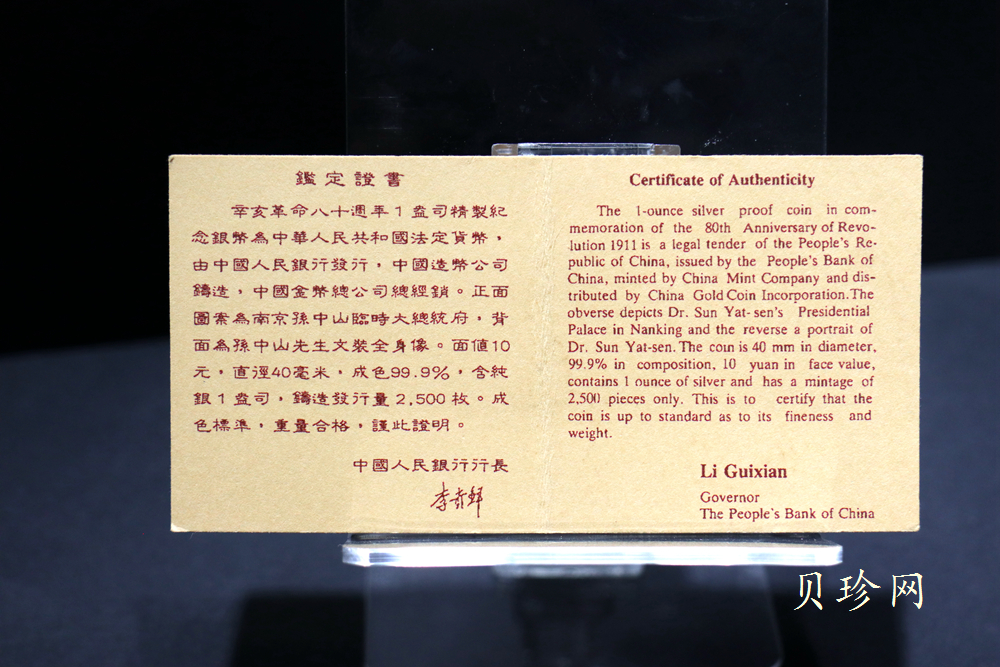 鑑定證書
辛亥革命八十週年1盎司精製紀
念銀幣為中華人民共和國法定貨幣，
由中國人民銀行發行，中國造幣公司
鑄造，中國金幣總公司總經銷。正面
圖案為南京孫中山臨時大總統府，背
面為孫中山先生文裝全身像。面值10
元，直徑40毫米，成色99.9%，含純
銀1盎司，鑄造發行量2,500枚。成
色標準，重量合格，謹此證明。
中國人民銀行行長
李贵鲜
Certificate of Authenticity
The 1-ounce silver proof coin in com-
memoration of the 80th Anniversary of Revo-
lution 1911 is a legal tender of the People's Re-
public of China, issued by the People's Bank of
China, minted by China Mint Company and dis-
tributed by China Gold Coin Incorporation.The
obverse depicts Dr. Sun Yat-sen's Presidential
Palace in Nanking and the reverse a portrait of
Dr. Sun Yat-sen. The coin is 40 mm in diameter,
99.9% in composition, 10 yuan in face value,
contains 1 ounce of silver and has a mintage of
2,500 pieces only. This is to certify that the
coin is up to standard as to its fineness and
weight.
Li Guixian
Governor
The People's Bank of China
贝珍网